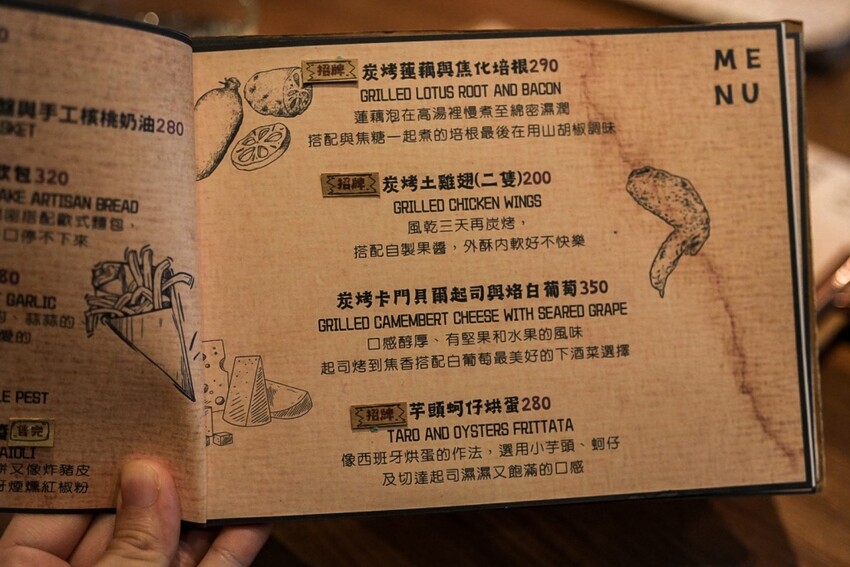 盤與手工核桃奶油280
SKET
欧包320
AKE ARTISAN BREAD
搭配歐式麵包，
口停不下來
80
GARLIC
、蒜蒜的、
愛的
LE PEST
售完
AIOLI
餅又像炸豬皮
牙煙燻紅椒粉
MENU
招牌 炭烤蓮藕與焦化培根290
GRILLED LOTUS ROOT AND BACON
蓮藕泡在高湯裡慢煮至綿密濕潤
搭配與焦糖一起煮的培根最後在用山胡椒調味
招牌 炭烤土雞翅(二隻)200
GRILLED CHICKEN WINGS
風乾三天再炭烤，
搭配自製果醬，外酥內軟好不快樂
炭烤卡門貝爾起司與烙白葡萄350
GRILLED CAMEMBERT CHEESE WITH SEARED GRAPE
口感醇厚、有堅果和水果的風味
起司烤到焦香搭配白葡萄最美好的下酒菜選擇
招牌 芋頭蚵仔烘蛋280
TARO AND OYSTERS FRITTATA
像西班牙烘蛋的作法，選用小芋頭、蚵仔
及切達起司濕濕又飽滿的口感